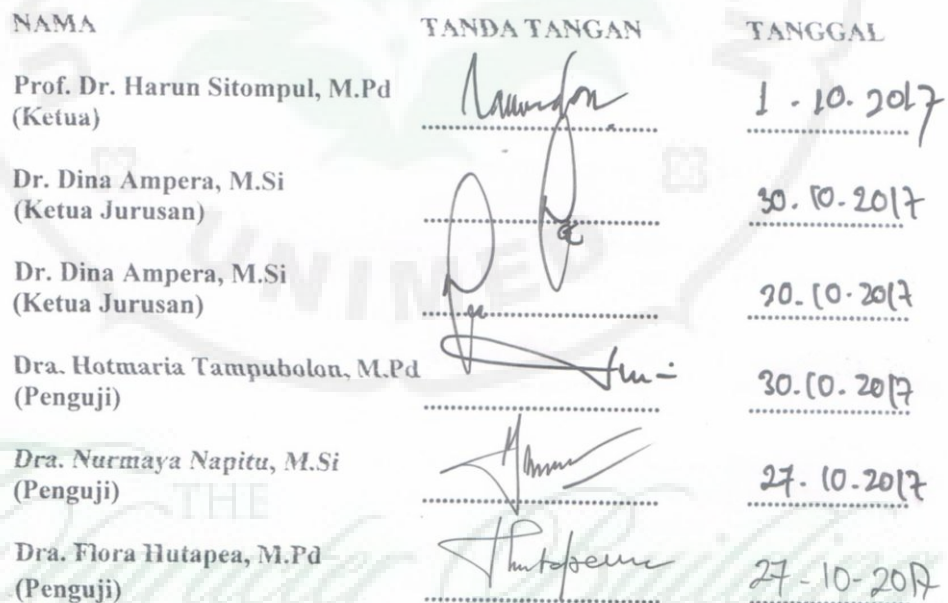 NAMA TANDA TANGAN TANGGAL
Prof. Dr. Harun Sitompul, M.Pd
(Ketua) 1 - 10. 2017
Dr. Dina Ampera, M.Si
(Ketua Jurusan) 30. 10. 2017
Dr. Dina Ampera, M.Si
(Ketua Jurusan) 30. 10. 2017
Dra. Hotmaria Tampubolon, M.Pd
(Penguji) 30. 10. 2017
Dra. Nurmaya Napitu, M.Si
(Penguji) 27. 10. 2017
Dra. Flora Hutapea, M.Pd
(Penguji) 27 - 10 - 2017
UNIMED
THE
Character Building